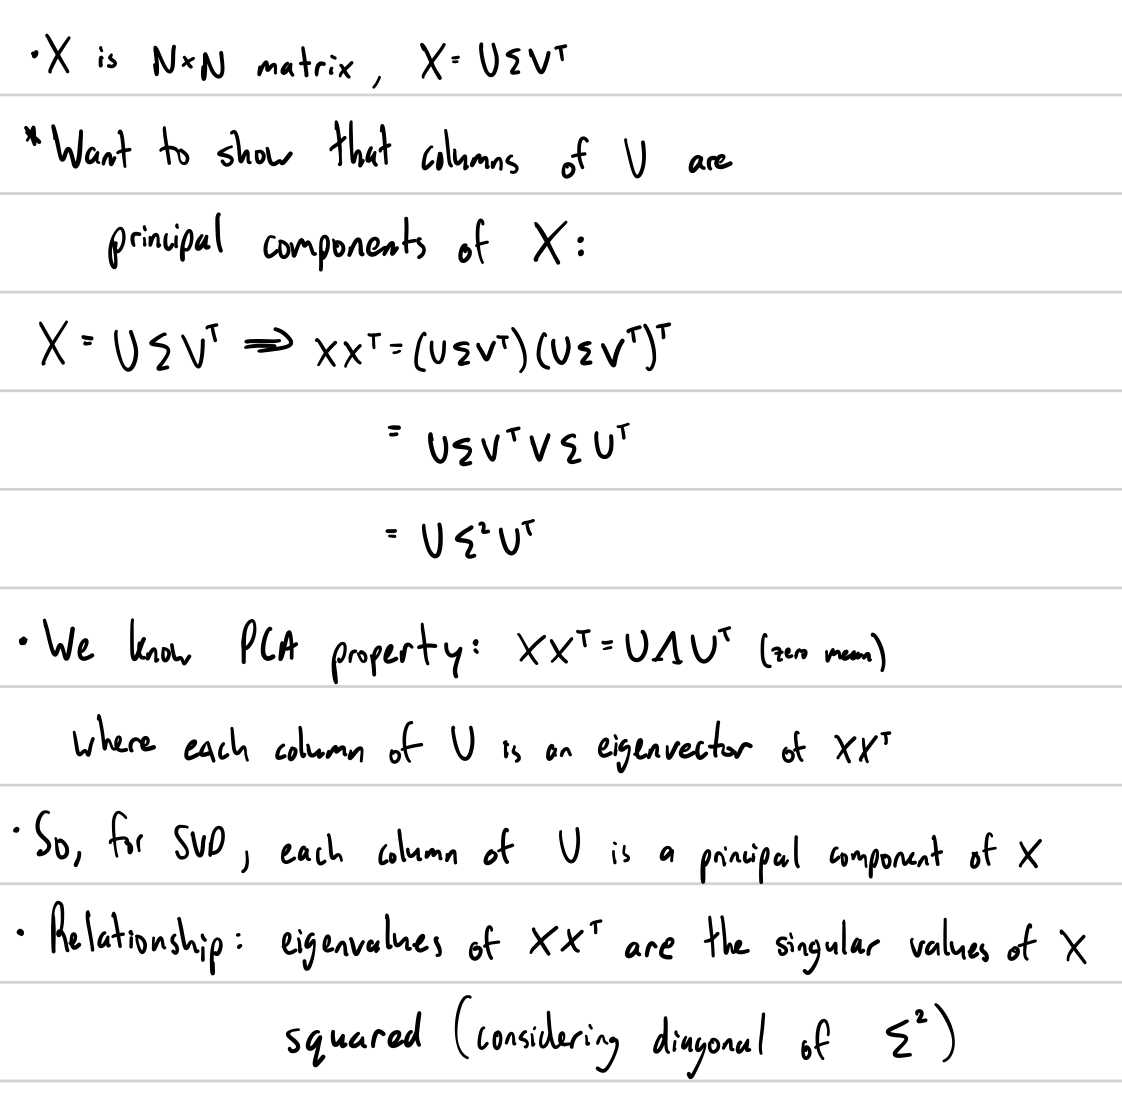 · X is N×N matrix, X = UΣVᵀ
* Want to show that columns of U are
principal components of X:
X = UΣVᵀ ⟹ XXᵀ = (UΣVᵀ)(UΣVᵀ)ᵀ
= UΣVᵀVΣUᵀ
= UΣ²Uᵀ
· We know PCA property: XXᵀ = UΛUᵀ (zero mean)
where each column of U is an eigenvector of XXᵀ
· So, for SVD, each column of U is a principal component of X
· Relationship: eigenvalues of XXᵀ are the singular values of X
squared (considering diagonal of Σ²)